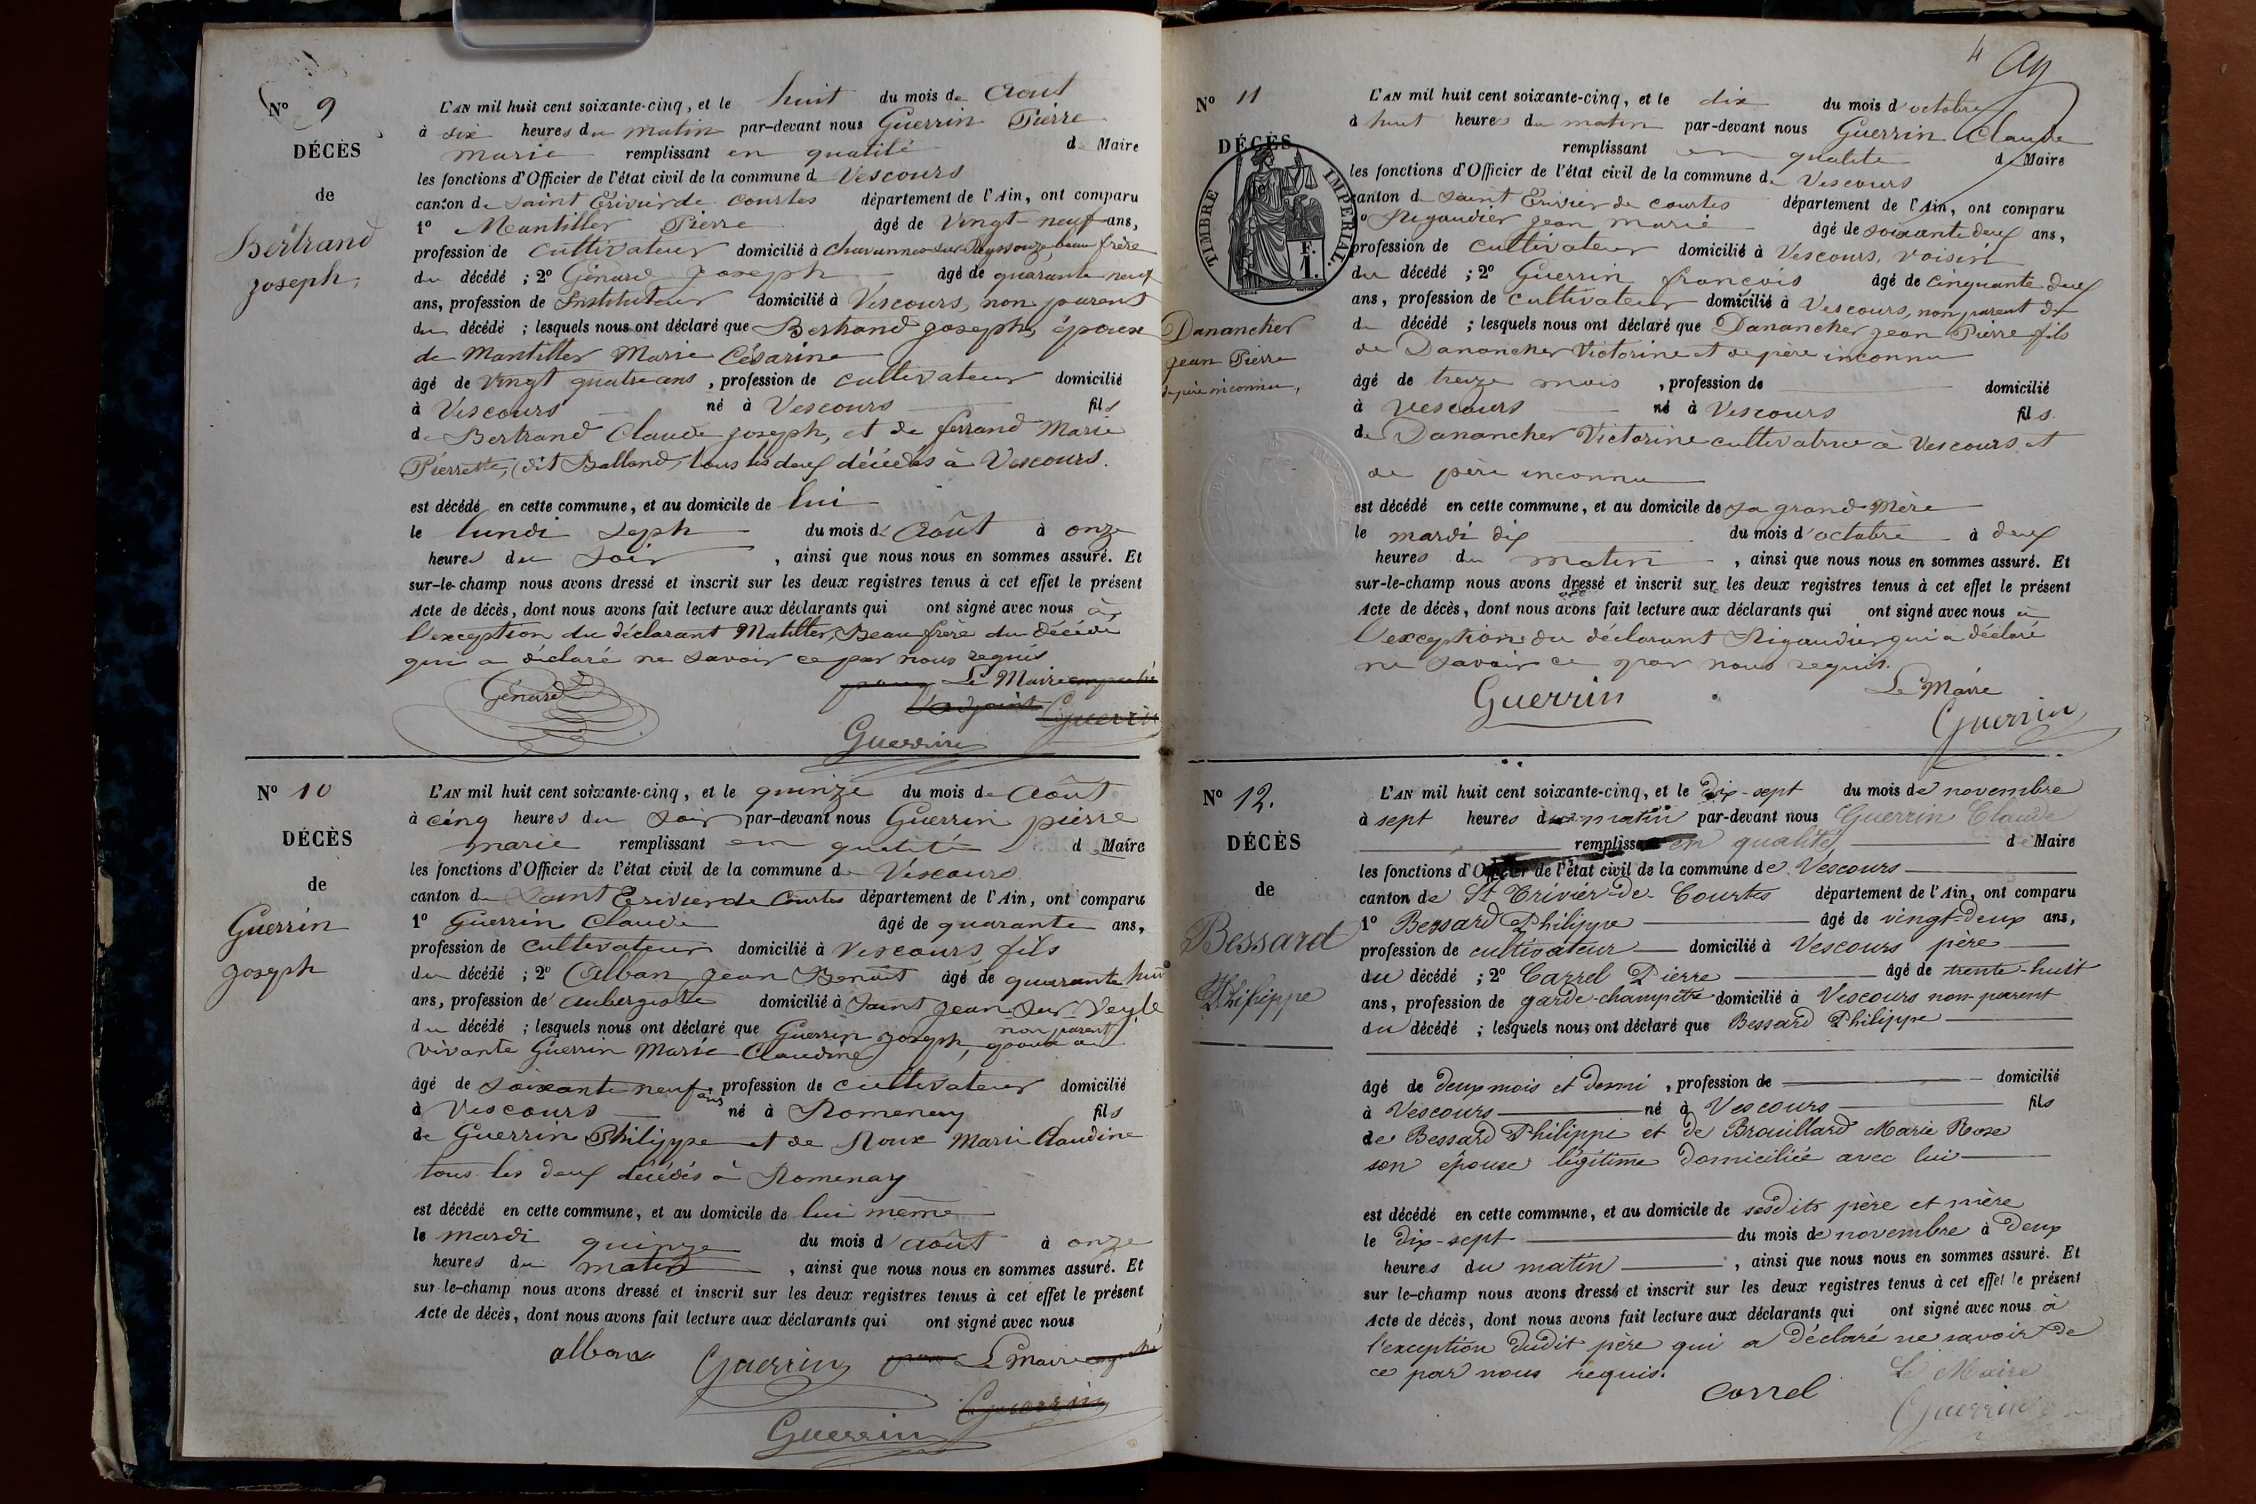 Nº 9
DÉCÈS
de
Bertrand
joseph,
L'AN mil huit cent soixante-cinq, et le huit du mois de Août
à six heures du matin par-devant nous Guerrin Pierre
marie remplissant en qualité d Maire
les fonctions d'Officier de l'état civil de la commune de Vescours
canton de saint Trivier de courtes département de l'Ain, ont comparu
1º Mantiller Pierre âgé de Vingt-neuf ans,
profession de cultivateur domicilié à chavannes sur Reyssouze, beau frère
du décédé ; 2º Génard joseph âgé de quarante neuf
ans, profession de Instituteur domicilié à Vescours, non parent
du décédé ; lesquels nous ont déclaré que Bertrand joseph, époux
de Mantiller Marie Césarine
âgé de vingt quatre ans, profession de cultivateur domicilié
à Vescours né à Vescours fils
de Bertrand Claude joseph, et de ferrand Marie
Pierrette, (dit Balland) tous les deux décédés à Vescours.
est décédé en cette commune, et au domicile de lui
le lundi Seph du mois d'Août à onze
heures du Soir, ainsi que nous nous en sommes assuré. Et
sur-le-champ nous avons dressé et inscrit sur les deux registres tenus à cet effet le présent
Acte de décès, dont nous avons fait lecture aux déclarants qui ont signé avec nous à
l'exception du déclarant Matilter, Beau frère du décédé
qui a déclaré ne savoir ce par nous requis
Le Maire empêché
Génard
L'adjoint Guerrin
Guerrin
Nº 10
DÉCÈS
de
Guerrin
joseph
L'AN mil huit cent soixante-cinq, et le quinze du mois de Août
à cinq heures du Soir par-devant nous Guerrin pierre
marie remplissant en qualité d Maire
les fonctions d'Officier de l'état civil de la commune de Vescours
canton de Saint Trivier de Courtes département de l'Ain, ont comparu
1º Guerrin Claude âgé de quarante ans,
profession de cultivateur domicilié à Vescours, fils
du décédé ; 2º Alban jean Benoit âgé de quarante huit
ans, profession de aubergiste domicilié à Saint jean Sur Veyle
non parent
du décédé ; lesquels nous ont déclaré que Guerrin joseph, époux de
vivante Guerrin Marie Claudine
âgé de soixante neuf ans, profession de cultivateur domicilié
à Vescours né à Romenay fils
de Guerrin Philippe et de Roux Marie Claudine
tous les deux décédés à Romenay
est décédé en cette commune, et au domicile de lui même
le mardi quinze du mois d'août à onze
heures du matin, ainsi que nous nous en sommes assuré. Et
sur-le-champ nous avons dressé et inscrit sur les deux registres tenus à cet effet le présent
Acte de décès, dont nous avons fait lecture aux déclarants qui ont signé avec nous
alban Guerrin pour Le Maire empêché
Guerrin
Guerrin
4
Nº 11
DÉCÈS
TIMBRE IMPÉRIAL
F.
1.
Danancher
jean Pierre
de père inconnu,
L'AN mil huit cent soixante-cinq, et le dix du mois d'octobre
à huit heures du matin par-devant nous Guerrin Claude
remplissant en qualité d Maire
les fonctions d'Officier de l'état civil de la commune de Vescours
canton de saint Trivier de courtes département de l'Ain, ont comparu
1º Rigaudier jean marie âgé de soixante deux ans,
profession de cultivateur domicilié à Vescours, voisin
du décédé ; 2º Guerrin françois âgé de cinquante deux
ans, profession de cultivateur domicilié à Vescours, non parent de
du décédé ; lesquels nous ont déclaré que Danancher jean Pierre fils
de Danancher Victorine et de père inconnu
âgé de treize mois, profession de domicilié
à Vescours né à Vescours fils
de Danancher Victorine cultivatrice à Vescours et
de père inconnu
est décédé en cette commune, et au domicile de sa grand Mère
le mardi dix du mois d'octobre à deux
heures du matin, ainsi que nous nous en sommes assuré. Et
sur-le-champ nous avons dressé et inscrit sur les deux registres tenus à cet effet le présent
Acte de décès, dont nous avons fait lecture aux déclarants qui ont signé avec nous à
l'exception du déclarant Rigaudier qui a déclaré
ne savoir ce par nous requis.
Guerrin Le Maire
Guerrin
Nº 12.
DÉCÈS
de
Bessard
Philippe
L'AN mil huit cent soixante-cinq, et le Dix-sept du mois de novembre
à sept heures du matin par-devant nous Guerrin Claude
remplissant en qualité de Maire
les fonctions d'Officier de l'état civil de la commune de Vescours
canton de St Trivier-de-Courtes département de l'Ain, ont comparu
1º Bessard Philippe âgé de vingt-deux ans,
profession de cultivateur domicilié à Vescours père
du décédé ; 2º Carrel Pierre âgé de trente-huit
ans, profession de garde-champêtre domicilié à Vescours non-parent
du décédé ; lesquels nous ont déclaré que Bessard Philippe
âgé de deux mois et demi, profession de domicilié
à Vescours né à Vescours fils
de Bessard Philippe et de Brouillard Marie Rose
son épouse légitime domiciliée avec lui
est décédé en cette commune, et au domicile de sesdits père et mère
le dix-sept du mois de novembre à Deux
heures du matin, ainsi que nous nous en sommes assuré. Et
sur le-champ nous avons dressé et inscrit sur les deux registres tenus à cet effet le présent
Acte de décès, dont nous avons fait lecture aux déclarants qui ont signé avec nous à
l'exception dudit père qui a déclaré ne savoir de
ce par nous requis.
Le Maire
Correl
Guerrin